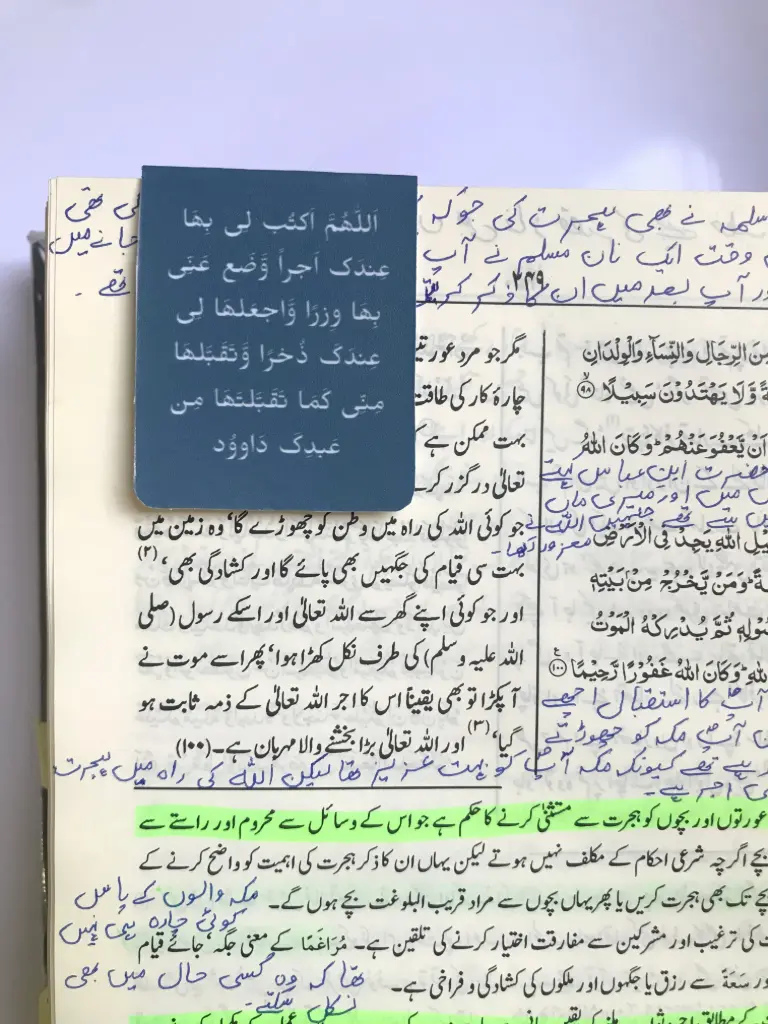 اَللّٰهُمَّ اَکتُب لی بِهَا
عِندَکَ اَجراً وَّضَع عَنِّی
بِهَا وِزرًا وَّاجعَلهَا لِی
عِندَکَ ذُخرًا وَّتَقَبَّلهَا
مِنِّی کَمَا تَقَبَّلتَهَا مِن
عَبدِکَ دَاووُد
سلمہ نے بھی ہجرت کی جو کہ
وقت ایک نان مسلم نے آپ
جانے میں
ور آپ بعد میں ان کا ذکر کر
تھے۔
۲۴۹
مِنَ الرِّجَالِ وَالنِّسَآءِ وَالْوِلْدَانِ
ةً وَّلَا يَهْتَدُوْنَ سَبِيْلًا ۙ ﴿۹۸﴾
اَنْ يَّعْفُوَعَنْهُمْ ۭ وَكَانَ اللّٰهُ
حضرت ابن عباس کہتے
میں اور میری ماں
يْلِ اللّٰهِ يَجِدْ فِى الْاَرْضِ
معزور رکھا۔
ةً ۭ وَمَنْ يَّخْرُجْ مِنْۢ بَيْتِهٖ
سُوْلِهٖ ثُمَّ يُدْرِكْهُ الْمَوْتُ
للّٰهِ ۭ وَكَانَ اللّٰهُ غَفُوْرًا رَّحِيْمًا ﴿۱۰۰﴾
آپؐ کا استقبال اچھے
آپؐ مکہ کو چھوڑتے
مگر جو مرد عورتیں
چارۂ کار کی طاقت
بہت ممکن ہے کہ
تعالیٰ درگزر کرے
جو کوئی اللہ کی راہ میں وطن کو چھوڑے گا، وہ زمین میں
بہت سی قیام کی جگہیں بھی پائے گا اور کشادگی بھی،(۲)
اور جو کوئی اپنے گھر سے اللہ تعالیٰ اور اسکے رسول (صلی
اللہ علیہ وسلم) کی طرف نکل کھڑا ہوا، پھر اسے موت نے
آ پکڑا تو بھی یقیناً اس کا اجر اللہ تعالیٰ کے ذمہ ثابت ہو
گیا،(۳) اور اللہ تعالیٰ بڑا بخشنے والا مہربان ہے۔(۱۰۰)
تھے کیونکہ مکہ آپؐ کو بہت عزیز تھا لیکن اللہ کی راہ میں ہجرت
اجر ہے۔
عورتوں اور بچوں کو ہجرت سے مستثنیٰ کرنے کا حکم ہے جو اس کے وسائل سے محروم اور راستے سے
بچے اگرچہ شرعی احکام کے مکلف نہیں ہوتے لیکن یہاں ان کا ذکر ہجرت کی اہمیت کو واضح کرنے کے
بچے تک بھی ہجرت کریں یا پھر یہاں بچوں سے مراد قریب البلوغت بچے ہوں گے۔
مکہ والوں کے پاس
کوئی چارہ ہی نہیں
ت کی ترغیب اور مشرکین سے مفارقت اختیار کرنے کی تلقین ہے۔ مُرَاغَمًا کے معنی جگہ، جائے قیام
تھا کہ وہ کسی حال میں بھی
ور سَعَةً سے رزق یا جگہوں اور ملکوں کی کشادگی و فراخی ہے۔
نکل سکتے۔